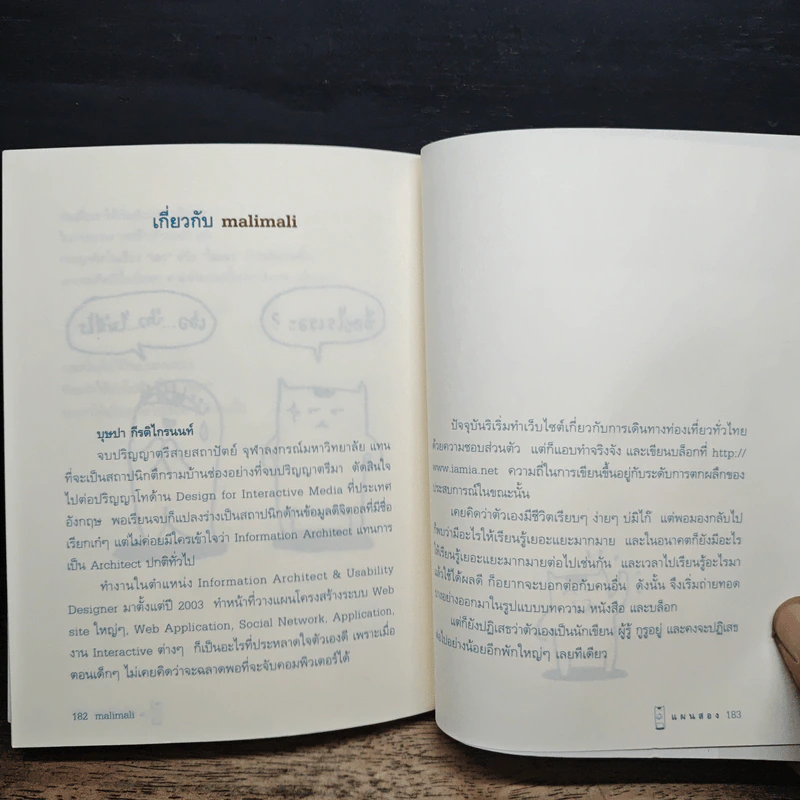 เกี่ยวกับ malimali
บุษปา กีรติไกรนนท์
จบปริญญาตรีสายสถาปัตย์ จุฬาลงกรณ์มหาวิทยาลัย แทน
ที่จะเป็นสถาปนิกตึกรามบ้านช่องอย่างที่จบปริญญาตรีมา ตัดสินใจ
ไปต่อปริญญาโทด้าน Design for Interactive Media ที่ประเทศ
อังกฤษ พอเรียนจบก็แปลงร่างเป็นสถาปนิกด้านข้อมูลดิจิตอลที่มีชื่อ
เรียกเก๋ๆ แต่ไม่ค่อยมีใครเข้าใจว่า Information Architect แทนการ
เป็น Architect ปกติทั่วไป
ทำงานในตำแหน่ง Information Architect & Usability
Designer มาตั้งแต่ปี 2003 ทำหน้าที่วางแผนโครงสร้างระบบ Web
site ใหญ่ๆ, Web Application, Social Network, Application,
งาน Interactive ต่างๆ ก็เป็นอะไรที่ประหลาดใจตัวเองดี เพราะเมื่อ
ตอนเด็กๆ ไม่เคยคิดว่าจะฉลาดพอที่จะจับคอมพิวเตอร์ได้
182 malimali
ปัจจุบันริเริ่มทำเว็บไซต์เกี่ยวกับการเดินทางท่องเที่ยวทั่วไทย
ด้วยความชอบส่วนตัว แต่ก็แอบทำจริงจัง และเขียนบล็อกที่ http://
www.iamia.net ความถี่ในการเขียนขึ้นอยู่กับระดับการตกผลึกของ
ประสบการณ์ในขณะนั้น
เคยคิดว่าตัวเองมีชีวิตเรียบๆ ง่ายๆ ปมิไก๊ แต่พอมองกลับไป
ก็พบว่ามีอะไรให้เรียนรู้เยอะแยะมากมาย และในอนาคตก็ยังมีอะไร
ให้เรียนรู้เยอะแยะมากมายต่อไปเช่นกัน และเวลาไปเรียนรู้อะไรมา
แล้วใช้ได้ผลดี ก็อยากจะบอกต่อกับคนอื่น ดังนั้น จึงเริ่มถ่ายทอด
บางอย่างออกมาในรูปแบบบทความ หนังสือ และบล็อก
แต่ก็ยังปฏิเสธว่าตัวเองเป็นนักเขียน ผู้รู้ กูรูอยู่ และคงจะปฏิเสธ
ต่อไปอย่างน้อยอีกพักใหญ่ๆ เลยทีเดียว
แผนสอง 183